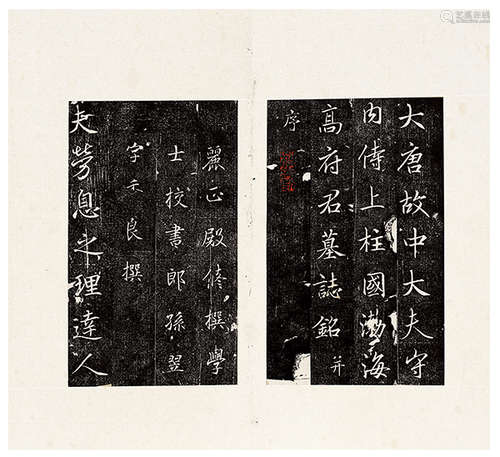 大唐故中大夫守
內侍上柱國渤海
高府君墓誌銘并
序
麗正殿修撰學
士校書郎孫翌
字季良撰
夫勞息之理達人